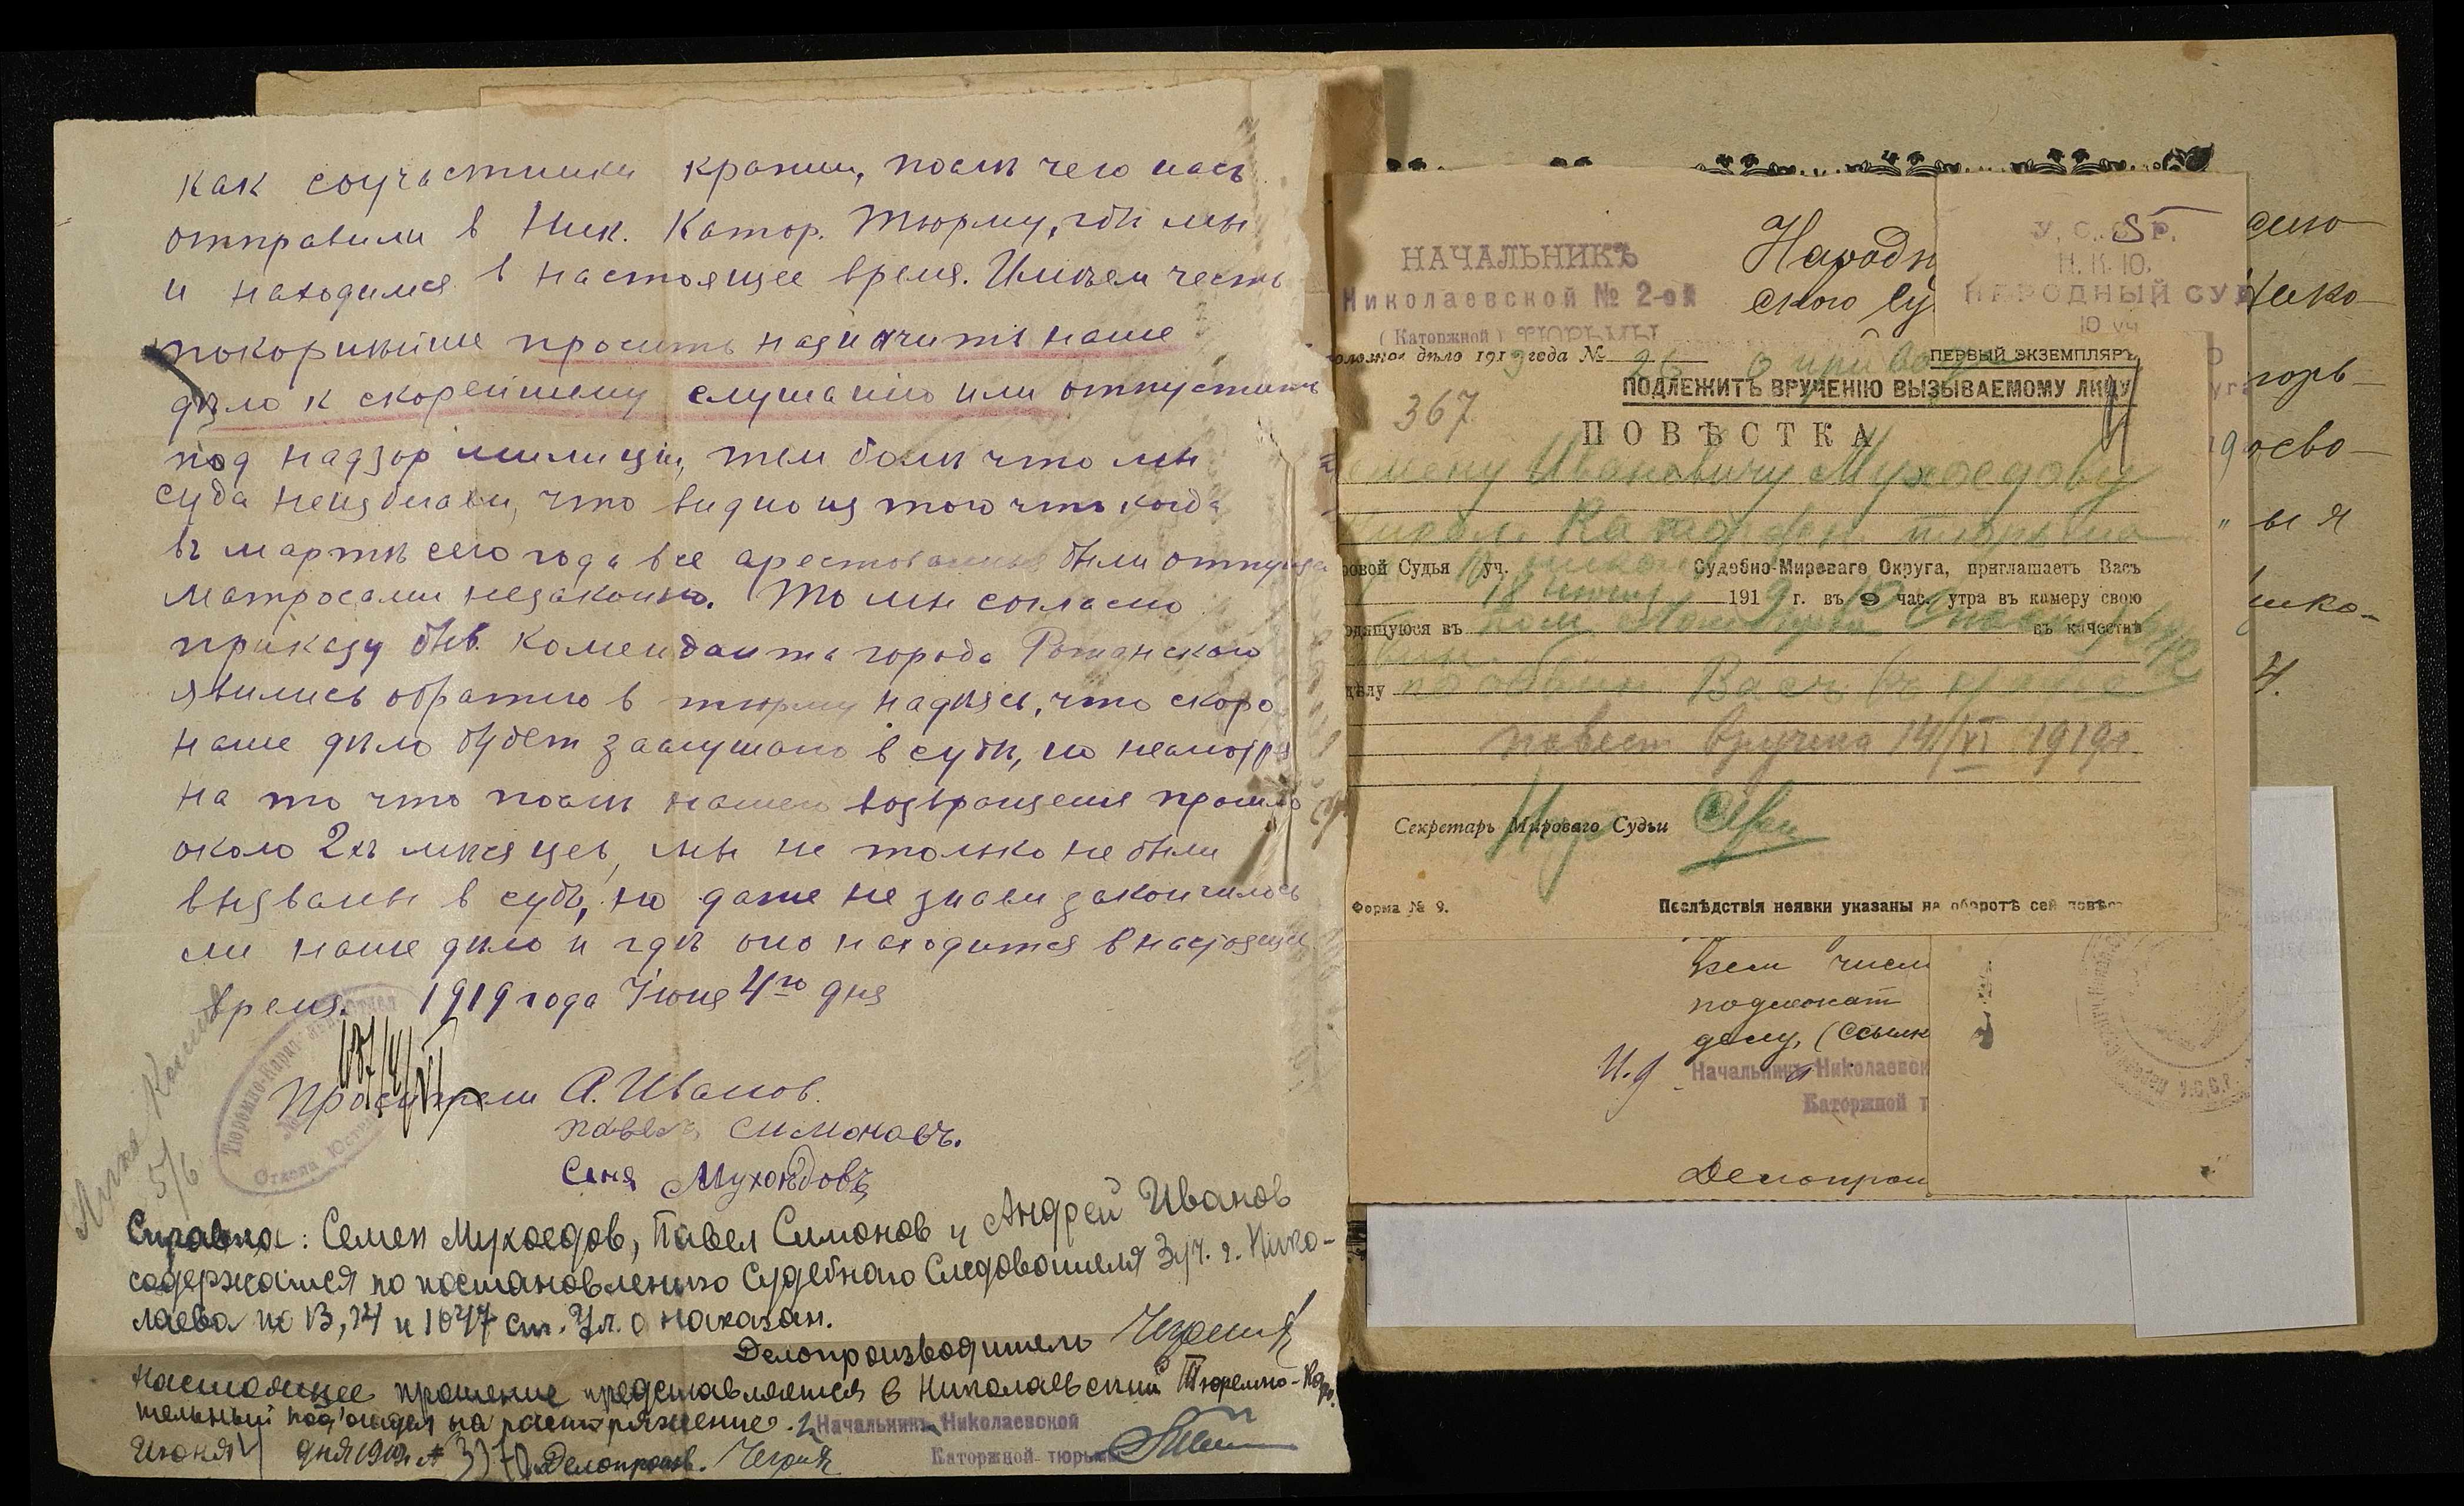 как соучастники кражи, послѣ чего насъ
отправили в Ник. Катор. Тюрму, гдѣ мы
и находимся в настоящее время. Имѣем честь
покорнѣйше просить назначить наше
дѣло к скорейшему слушанию или отпустить
под надзор милиціи, тем болѣе что мы
суда неизбегаем, что видно из того что когда
въ мартѣ сего года все арестованные были отпущен
матросами незаконно. То мы согласно
приказу быв. Комендантa города
явились обратно в тюрму надѣясь, что скоро
наше дѣло будет заслушано в судѣ, но несмотря
на то что послѣ нашего возвращения прошло
около 2хъ мѣсяцев, мы не только не были
вызваны в судъ, но даже не знаем закончилось
ли наше дѣло и гдѣ оно находится в настоящее
время. 1919 года Іюня 4го дня
Просители А. Иванов.
павелъ симоновъ.
Сеня Мухоѣдовъ
5/6
Тюремно-Карат
Отдела Юстиц
Справка: Семен Мухоедов, Павел Симонов и Андрей Иванов
содержатся по постановлению Судебнаго Следователя 3 уч. г. Нико-
лаева по 13, 14 и 1647 ст. Ул. о наказан.
Делопроизводитель
Настоящее прошение представляется в Николаевский Тюремно-Кара
тельный под'отдел на распоряжение.
Июня 4 дня 1919 г. № 3370 Делопроизв.
Начальникъ Николаевской
Каторжной тюрьмы
НАЧАЛЬНИКЪ
Николаевской № 2-ой
(Каторжной) ТЮРЬМЫ
Народн
ского Су
У. С. С. Р.
Н. К. Ю.
НАРОДНЫЙ СУД
10 уч
оловное дѣло 1919 года № 26 О приводе
ПЕРВЫЙ ЭКЗЕМПЛЯРЪ
ПОДЛЕЖИТЪ ВРУЧЕНІЮ ВЫЗЫВАЕМОМУ ЛИЦУ
367
ПОВѢСТКА
емену Ивановичу Мухоедову
Никол. Каторжн. тюрьма
ровой Судья уч. Судебно-Мироваго Округа, приглашаетъ Васъ
18 июня 1919 г. въ 9 час. утра въ камеру свою
одящуюся въ въ качествѣ
дѣлу по обвин Вас в краже
повест вручена 14/VI 1919 г
Секретарь Мироваго Судьи
Форма № 9.
Послѣдствія неявки указаны на оборотѣ сей повѣст
сем числ
подлежат
делу, (ссылк
И.д. Начальникъ Николаевск
Каторжной т
Делопрои
У.С.С.Р.
нико-
горь-
осво-
ыя
нико-
4.